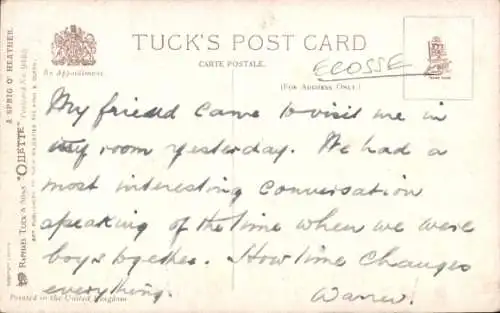 TUCK'S POST CARD
CARTE POSTALE.
(FOR ADDRESS ONLY.)
ECOSSE
By Appointment.
A SPRIG O' HEATHER.
RAPHAEL TUCK & SONS' "OILETTE"
ART PUBLISHERS TO THEIR MAJESTIES THE KING & QUEEN.
My friend came to visit me in
my room yesterday. We had a
most interesting conversation
speaking of the time when we were
boys together. How time changes
everything.
Warren.
Printed in the United Kingdom